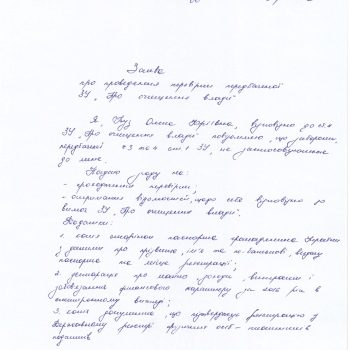 Заява
про проведення перевірки, передбаченої
ЗУ „Про очищення влади"
Я, Олена, відповідно до ст. 4
ЗУ „Про очищення влади" повідомляю, що заборони,
передбачені ч 3 та 4 ст 1 ЗУ, не застосовуються
до мене.
Надаю згоду на:
- проходження перевірки;
- оприлюднення відомостей щодо себе відповідно до
вимог ЗУ „Про очищення влади".
Додатки:
1. копія сторінок паспорта громадянина України
з даними про прізвище, ім'я та по-батькові, видачу
паспорта та місце реєстрації;
2. декларація про майно, доходи, витрати і
зобов'язання фінансового характеру за рік в
електронному вигляді;
3. копія документа, що підтверджує реєстрацію у
Державному реєстрі фізичних осіб - платників
податків